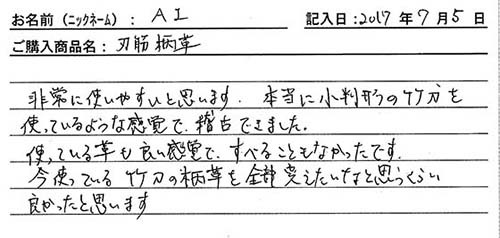 お名前(ニックネーム) : AI 記入日:2017年7月5日
ご購入商品名: 刃筋柄革
非常に使いやすいと思います. 本当に小判形の竹刀を
使っているような感覚で、稽古できました。
使っている革も良い感覚で、すべることもなかったです.
今使っている 竹刀の柄革を全部変えたいなと思うくらい
良かったと思います